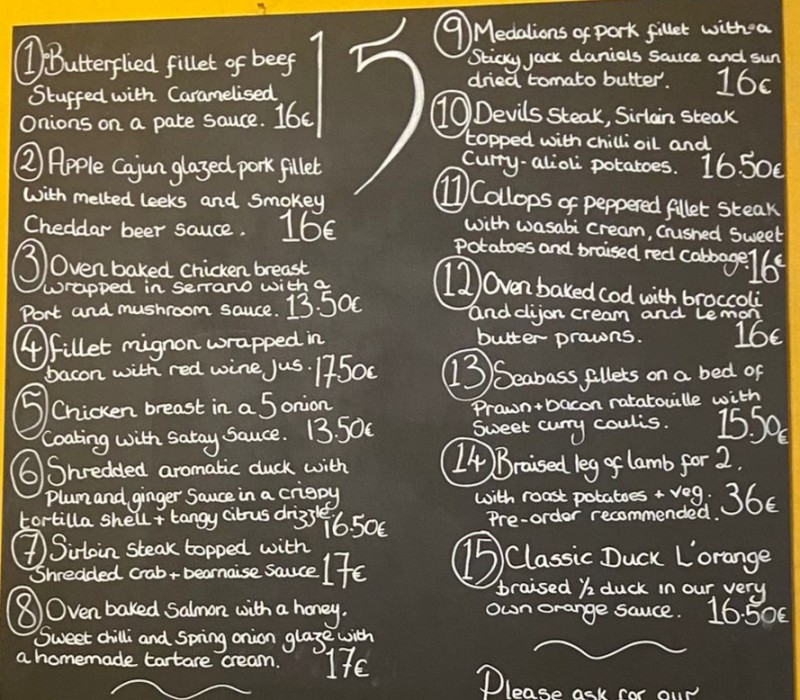 15
① Butterflied fillet of beef
Stuffed with Caramelised
Onions on a pate sauce. 16€
② Apple Cajun glazed pork fillet
with melted leeks and Smokey
Cheddar beer sauce. 16€
③ Oven baked Chicken breast
wrapped in serrano with a
Port and mushroom sauce. 13.50€
④ fillet mignon wrapped in
bacon with red wine Jus. 17.50€
⑤ Chicken breast in a 5 onion
Coating with Satay Sauce. 13.50€
⑥ Shredded aromatic duck with
Plum and ginger Sauce in a crispy
tortilla shell + tangy citrus drizzle. 16.50€
⑦ Sirloin steak topped with
Shredded Crab + bearnaise Sauce 17€
⑧ Oven baked Salmon with a honey,
Sweet chilli and Spring onion glaze with
a homemade tartare cream. 17€
⑨ Medalions of pork fillet with a
Sticky jack daniels Sauce and sun
dried tomato butter. 16€
⑩ Devils Steak, Sirloin steak
topped with chilli oil and
Curry-alioli potatoes. 16.50€
⑪ Collops of peppered fillet Steak
with wasabi cream, crushed Sweet
Potatoes and braised red cabbage 16€
⑫ Oven baked Cod with broccoli
and dijon cream and Lemon
butter prawns. 16€
⑬ Seabass fillets on a bed of
Prawn + bacon ratatouille with
Sweet curry coulis. 15.50€
⑭ Braised leg of lamb for 2.
with roast potatoes + veg.
Pre-order recommended. 36€
⑮ Classic Duck L'orange
braised ½ duck in our very
own orange sauce. 16.50€
Please ask for our